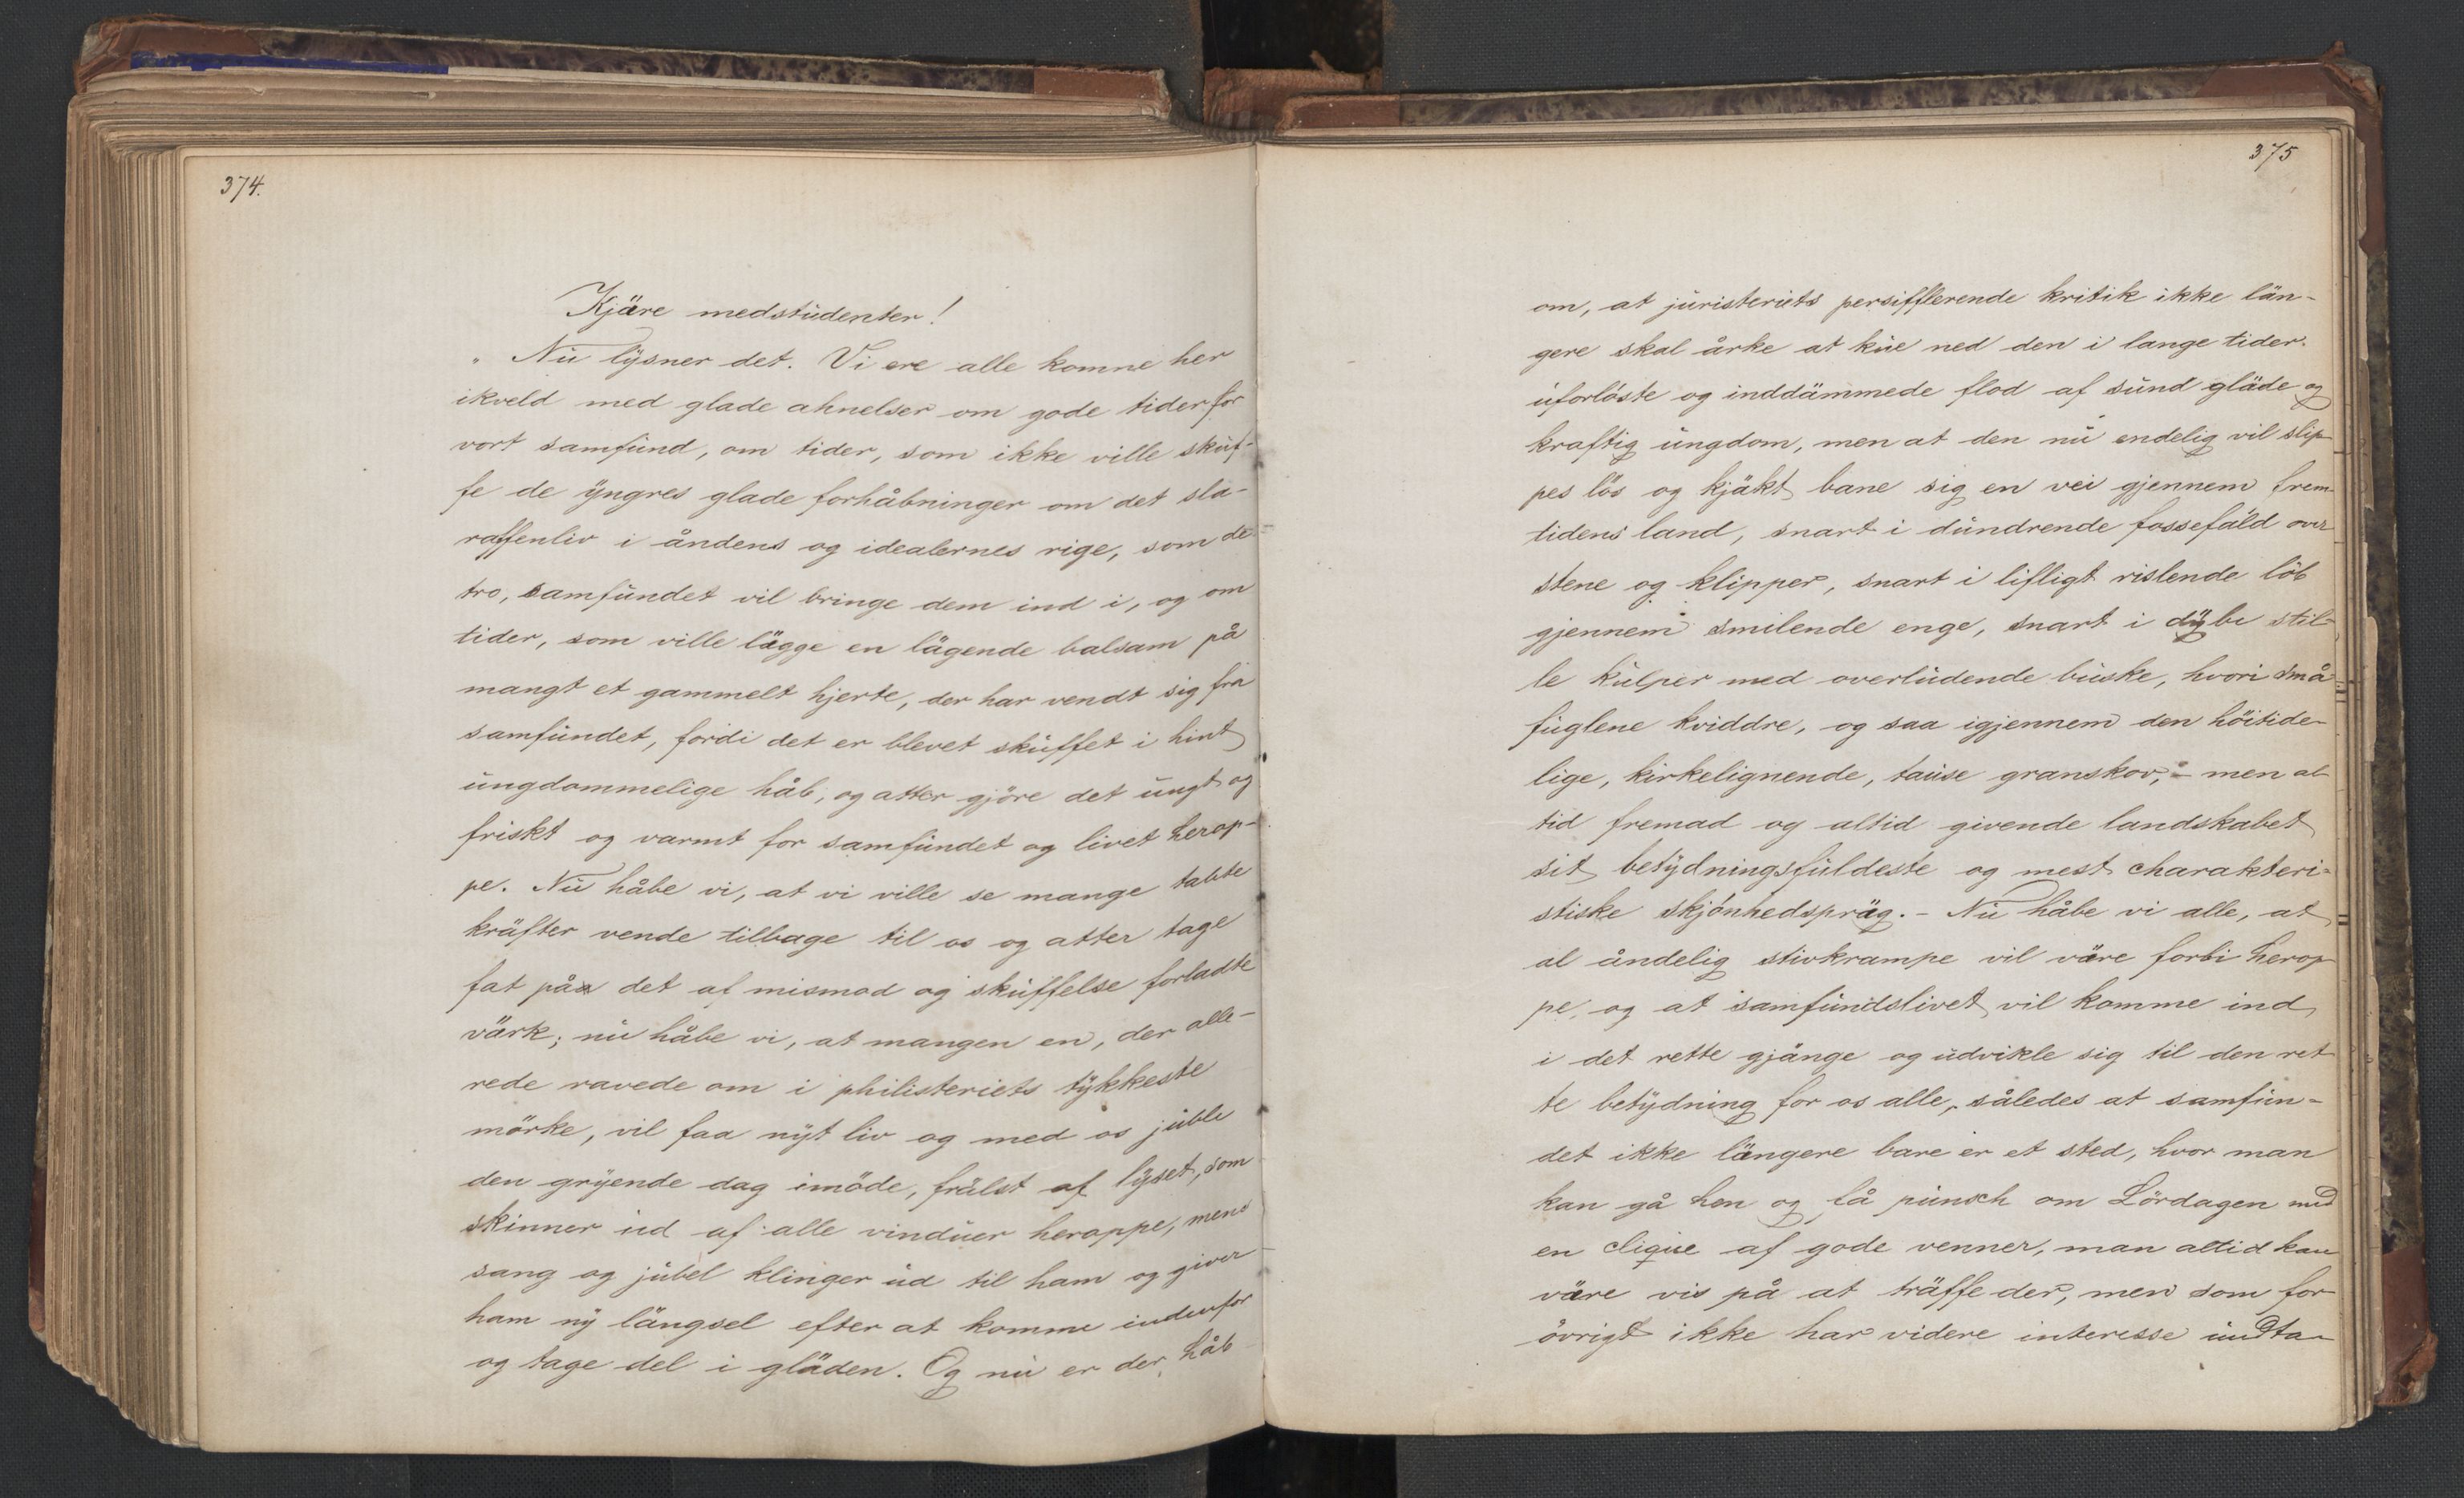 374.
Kjäre medstudenter!
„ Nu lysner det. Vi ere alle komne her
ikveld med glade ahnelser om gode tider for
vort samfund, om tider, som ikke ville skuf-
fe de yngres glade forhåbninger om det sla-
raffenliv i åndens og idealernes rige, som de
tro, samfundet vil bringe dem ind i, og om
tider, som ville lägge en lägende balsam på
mangt et gammelt hjerte, der har vendt sig fra
samfundet, fordi det er blevet skuffet i hint
ungdommelige håb, og atter gjöre det ungt og
friskt og varmt for samfundet og livet herop-
pe. Nu håbe vi, at vi ville se mange tabte
kräfter vende tilbage til os og atter tage
fat på det af mismod og skuffelse forladte
värk; nu håbe vi, at mangen en, der alle-
rede ravede om i philisteriets tykkeste
mörke, vil faa nyt liv og med os juble
den gryende dag imöde, frälst af lyset, som
skinner ud af alle vinduer heroppe, mens
sang og jubel klinger ud til ham og giver
ham ny längsel efter at komme indenfor
og tage del i gläden. Og nu er der håb
375
om, at juristeriets persifflerende kritik ikke län-
gere skal årke at kue ned den i lange tider
uforlöste og inddämmede flod af sund gläde og
kraftig ungdom, men at den nu endelig vil slip-
pes lös og kjäkt bane sig en vei gjennem frem-
tidens land, snart i dundrende fossefald over
stene og klipper, snart i lifligt rislende löb
gjennem smilende enge, snart i dybe stil-
le kulper med overludende buske, hvori små
fuglene kviddre, og saa igjennem den höitide-
lige, kirkelignende, tause granskov, – men al-
tid fremad og altid givende landskabet
sit betydningsfuldeste og mest charakteri-
stiske skjönhedspräg. – Nu håbe vi alle, at
al åndelig stivkrampe vil väre forbi herop
pe, og at samfundslivet vil komme ind
i det rette gjänge og udvikle sig til den ret
te betydning for os alle, således at samfun-
det ikke längere bare er et sted, hvor man
kan gå hen og få punsch om Lördagen med
en clique af gode venner, man altid kan
väre vis på at träffe der, men som for
övrigt ikke har videre interesse undta-